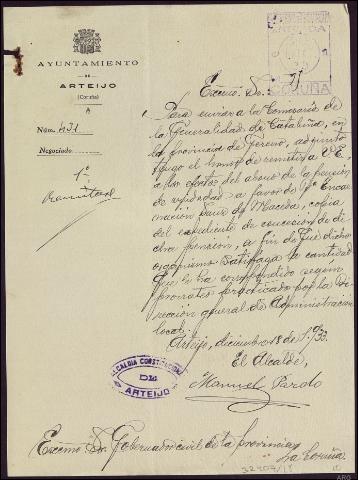 AYUNTAMIENTO
DE
ARTEIJO
(Coruña)
Núm. 431
Negociado
1º
CORUÑA
Excmo. Sr.
Para enviar a la Comisaría de
la Generalidad de Cataluña, en
la provincia de Gerona, adjunto
tengo el honor de remitir a V.E.
a los efectos del abono de la pensión
de viudedad a favor de Dª Encar
nación Sanz de Maceda, copia
del expediente de concesión de di
cha pensión, a fin de que dicho
organismo satisfaga la cantidad
que le ha correspondido según
prorrateo practicado por la Di
rección general de Administración
local.
Arteijo, diciembre 18 de 1.933.
El Alcalde,
Manuel Pardo
ALCALDIA CONSTITUCIONAL
DE
ARTEIJO
Excmo. Sr. Gobernador civil de la provincia
La Coruña
ARG